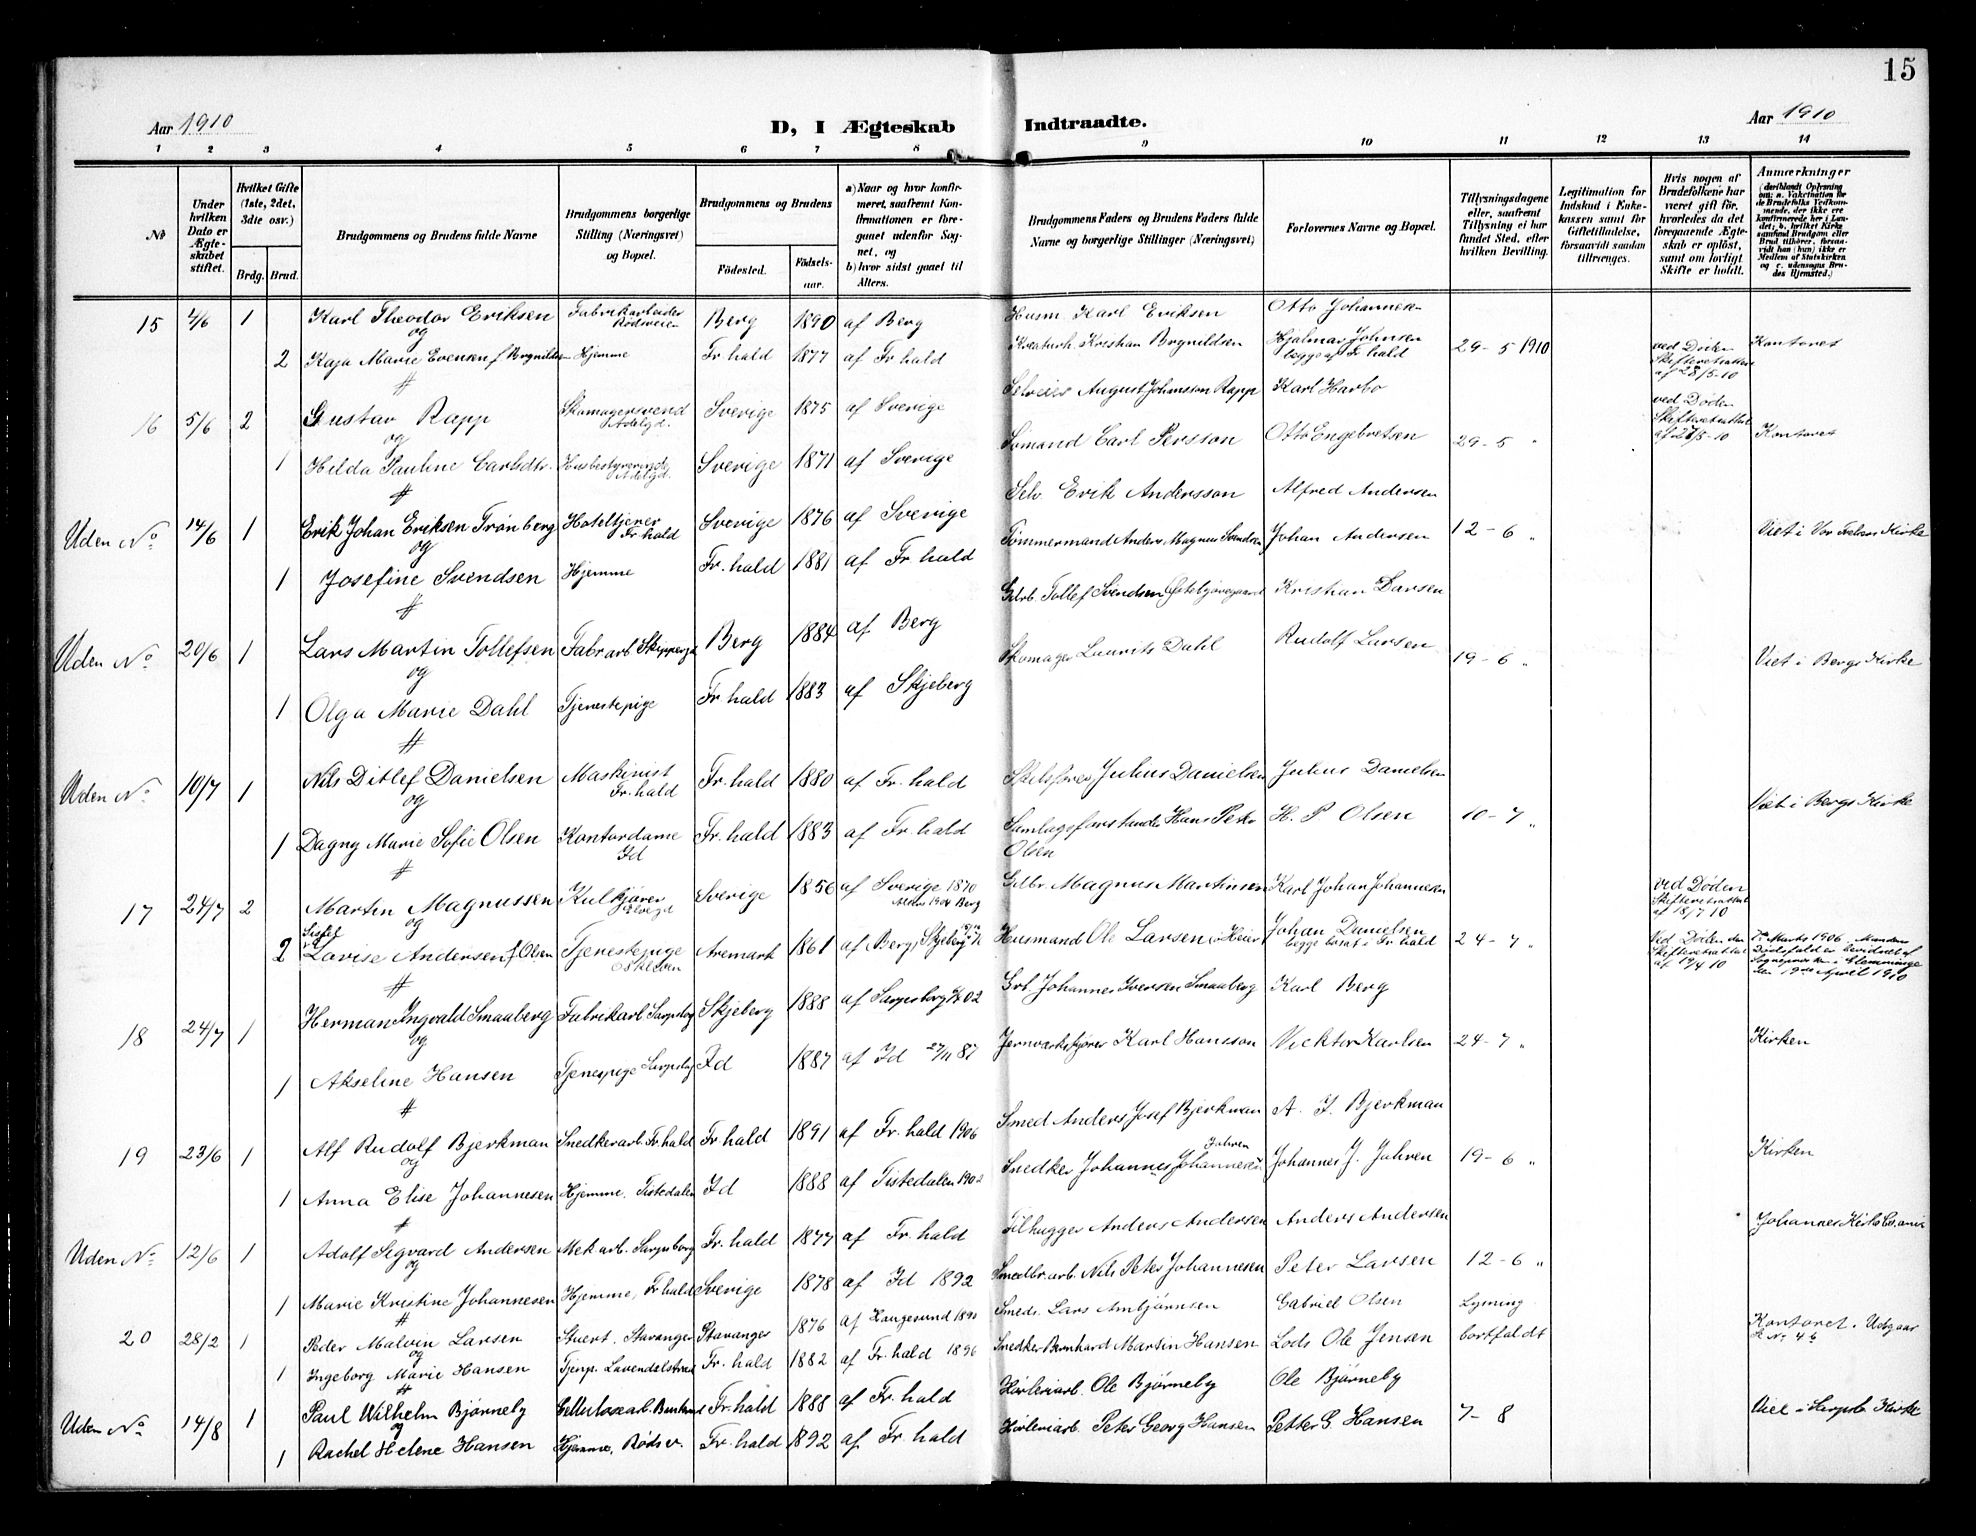 15
Aar 1910 D, I Ægteskab Indtraadte. Aar 1910
1 2 3 4 5 6 7 8 9 10 11 12 13 14
No
Under hvilken Dato er Ægteskabet stiftet.
Hvilket Gifte (1ste, 2det, 3dte osv.)
Brdg. Brud.
Brudgommens og Brudens fulde Navne
Brudgommens borgerlige Stilling (Næringsvei) og Bopæl.
Brudgommens og Brudens
Födested. Födselsaar.
a) Naar og hvor konfirmeret, saafremt Konfirmationen er foregaaet udenfor Sognet, og
b) hvor sidst gaaet til Alters.
Brudgommens Faders og Brudens Faders fulde Navne og borgerlige Stillinger (Næringsvei)
Forlovernes Navne og Bopæl.
Tillysningsdagene eller, saafremt Tillysning ei har fundet Sted, efter hvilken Bevilling.
Legitimation for Indskud i Enkekassen samt for Giftetilladelse, forsaavidt saadan tiltrænges.
Hvis nogen af Brudefolkene har været gift för, hvorledes da det foregaaende Ægteskab er oplöst, samt om lovligt Skifte er holdt.
Anmærkninger
15 1 Karl Theodor Eriksen Fabrikarbeider Rödsveien Berg 1890 af Berg Husm. Karl Eriksen Otto Johannesen
og
2 Kaja Marie Evensen f Brynildsen Hjemme Fr. hald 1877 af Fr hald Kristian Brynildsen Hjalmar Johnsen begge af Fr hald 29-5 1910 ved Døden Skifteretsattest af 28/5-10 Kontoret
16 5/6 2 Gustav Rapp Skomagersvend Adelgd. Sverige 1875 af Sverige Selveier August Johanson Rapp Karl Harbo
og
1 Hilda Pauline Carlsdtr. Husbestyrerinde Adelgd. Sverige 1871 af Sverige Sømand Carl Persson Otto Engebretsen 29-5 " ved Døden Skifteretsattest Kontoret
Uden No 14/6 1 Erik Johan Eriksen Trønberg Hoteltjener Fr hald Sverige 1876 af Sverige Selv. Erik Andersson Alfred Andersen
og
1 Josefine Svendsen Hjemme Fr. hald 1881 af Fr hald Tömmermand Anders Magnus Svendsen Johan Andersen 12-6 " Viet i Vor Frelsers Kirke
Uden No 20/6 1 Lars Martin Tollefsen Fabr arb Berg 1884 af Berg Gdrb. Tollef Svendsen Kristian Larsen
og
1 Olga Marie Dahl Tjenestepige Fr. hald 1883 af Skjeberg Skomager Laurits Dahl Rudolf Larsen 19-6 " Viet i Bergs Kirke
Uden No 10/7 1 Nils Ditlef Danielsen Maskinist Fr. hald Fr. hald 1880 af Fr. hald Skibsfører Julius Danielsen Julius Danielsen
og
1 Dagny Marie Sofie Olsen Kontordame Id Fr. hald 1883 af Fr. hald Samlagsforstander Hans Peter Olsen H. P Olsen 10-7 " Viet i Bergs Kirke
17 24/7 2 Martin Magnussen Kulkjører Sverige 1856 af Sverige 1870 Alters 1904 Berg Gdbr. Magnus Martinsen Karl Johan Johannesen ved Døden Skifteretsattest af 18/7 10
og
2 Sissel Lovise Andersen f. Olsen Tjenestepige Aremark 1861 af Berg, Skjeberg Husmand Ole Larsen Johan Danielsen begge bosat i Fr hald 24-7 " Ved Døden den Skifteretsattest af 19/4 10 7de Marts 1906. Mandens Dödsfald er bevidnet af Sognepræsten i Glemminge den 19de April 1910
18 24/7 1 Herman Ingvald Smaaberg Fabrikarb. Sarpsbg Skjeberg 1888 af Sarpsborg 02 Johannes Iversen Smaaberg Karl Berg
og
1 Akseline Hansen Tjenespige Sarpsbg Id 1887 af Id 27/11 87 Jernværkskjører Karl Hansson Vicktor Karlsen 24-7 " Kirken
19 23/6 1 Alf Rudolf Bjerkman Snedkerarb. Fr hald Fr hald 1891 af Fr. hald 1906 Smed Anders Josef Bjerkman A. J. Bjerkman
og
1 Anna Elise Johannesen Hjemme. Tistedalen Id 1888 af Tistedalen 1902 Snedker Johannes Johannesen Jahren Johannes J. Jahren 19-6 " Kirken
Uden No 12/6 1 Adolf Sigvard Andersen Mek arb. Sarpsborg Fr. hald 1877 af Fr. hald Filhugger Anders Andersen Anders Andersen Johannes Kirke
og
1 Marie Kristine Johannesen Hjemme, Fr hald Sverige 1878 af Id 1892 Smedbr.arb. Nils Peter Johannesen Peter Larsen 12-6 "
20 28/2 Peder Malvin Larsen Stuert. Stavanger Stavanger 1876 af Haugesund 1890 Smeds. Lars Ambjørnsen Gabriel Olsen Lysning Kontoret.
og
1 Ingeborg Marie Hansen Tjenp. Lavendelstræd Fr. hald 1882 af Fr. hald 1896 Snedker Bernhard Martin Hansen Lods Ole Jenan bortfaldt No 46
Uden No 14/8 1 Paul Wilhelm Bjørneby Fr. hald 1888 af Fr. hald Høvleriarb. Ole Bjørneby Ole Bjørneby
og
1 Rachel Helene Hansen Hjemme, Rødsv. Fr. hald 1892 af Fr. hald Høvleriarb. Peter Georg Hansen Petter G. Hansen 7-8 Viet i Sarpsb. Kirke